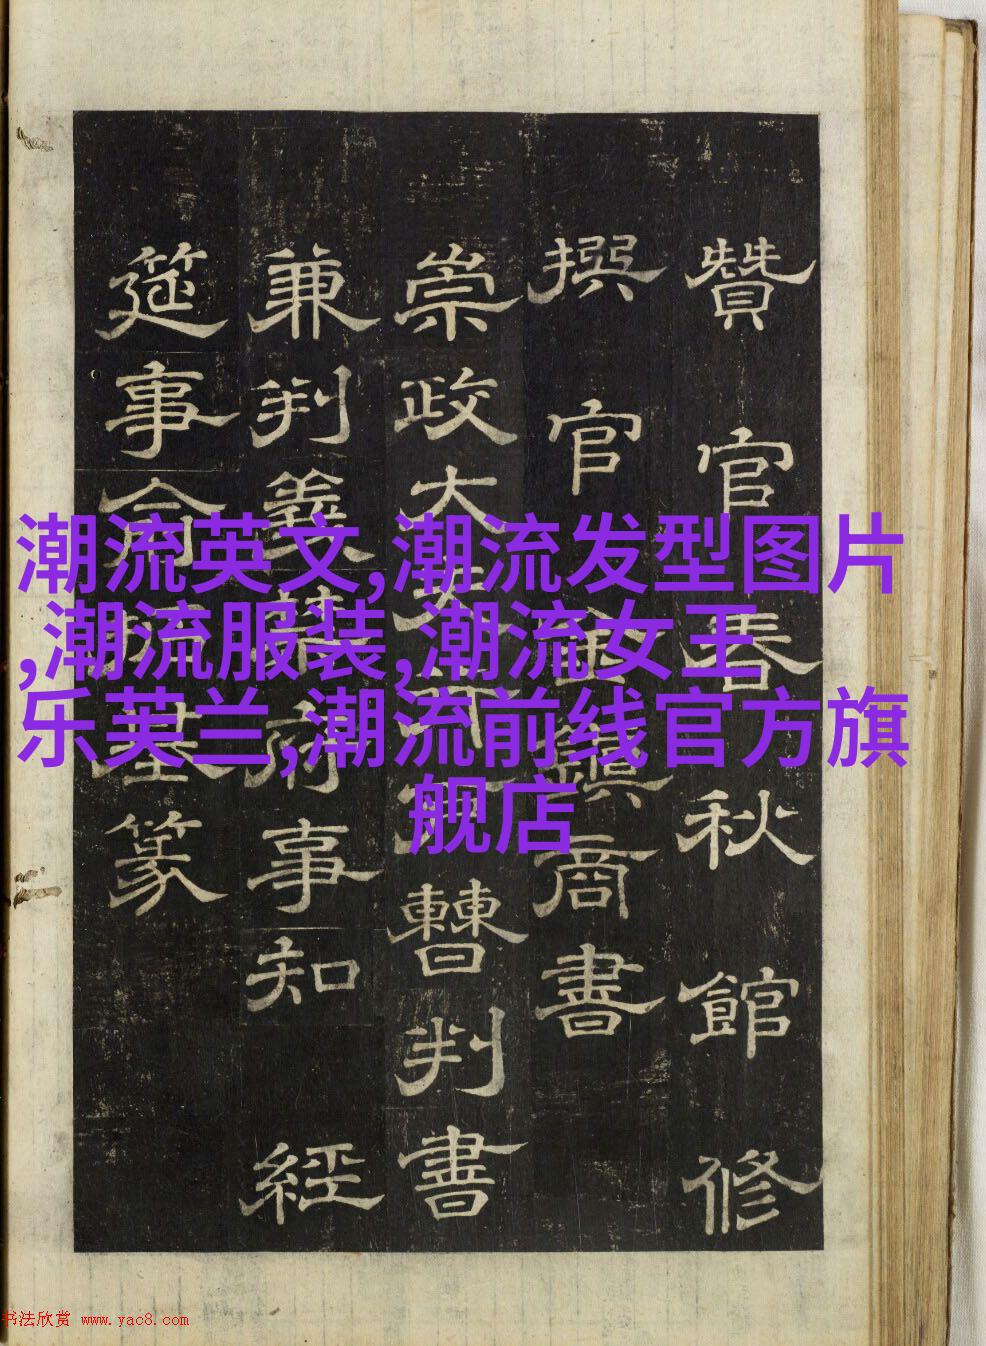 贊官春秋館修
撰官金鎮商書
崇政大夫行曹判書
兼判義禁府事知經
筵事俞拓基篆
潮流英文,潮流发型图片
,潮流服装,潮流女王
乐芙兰,潮流前线官方旗
舰店
书法欣赏 www.yac8.com